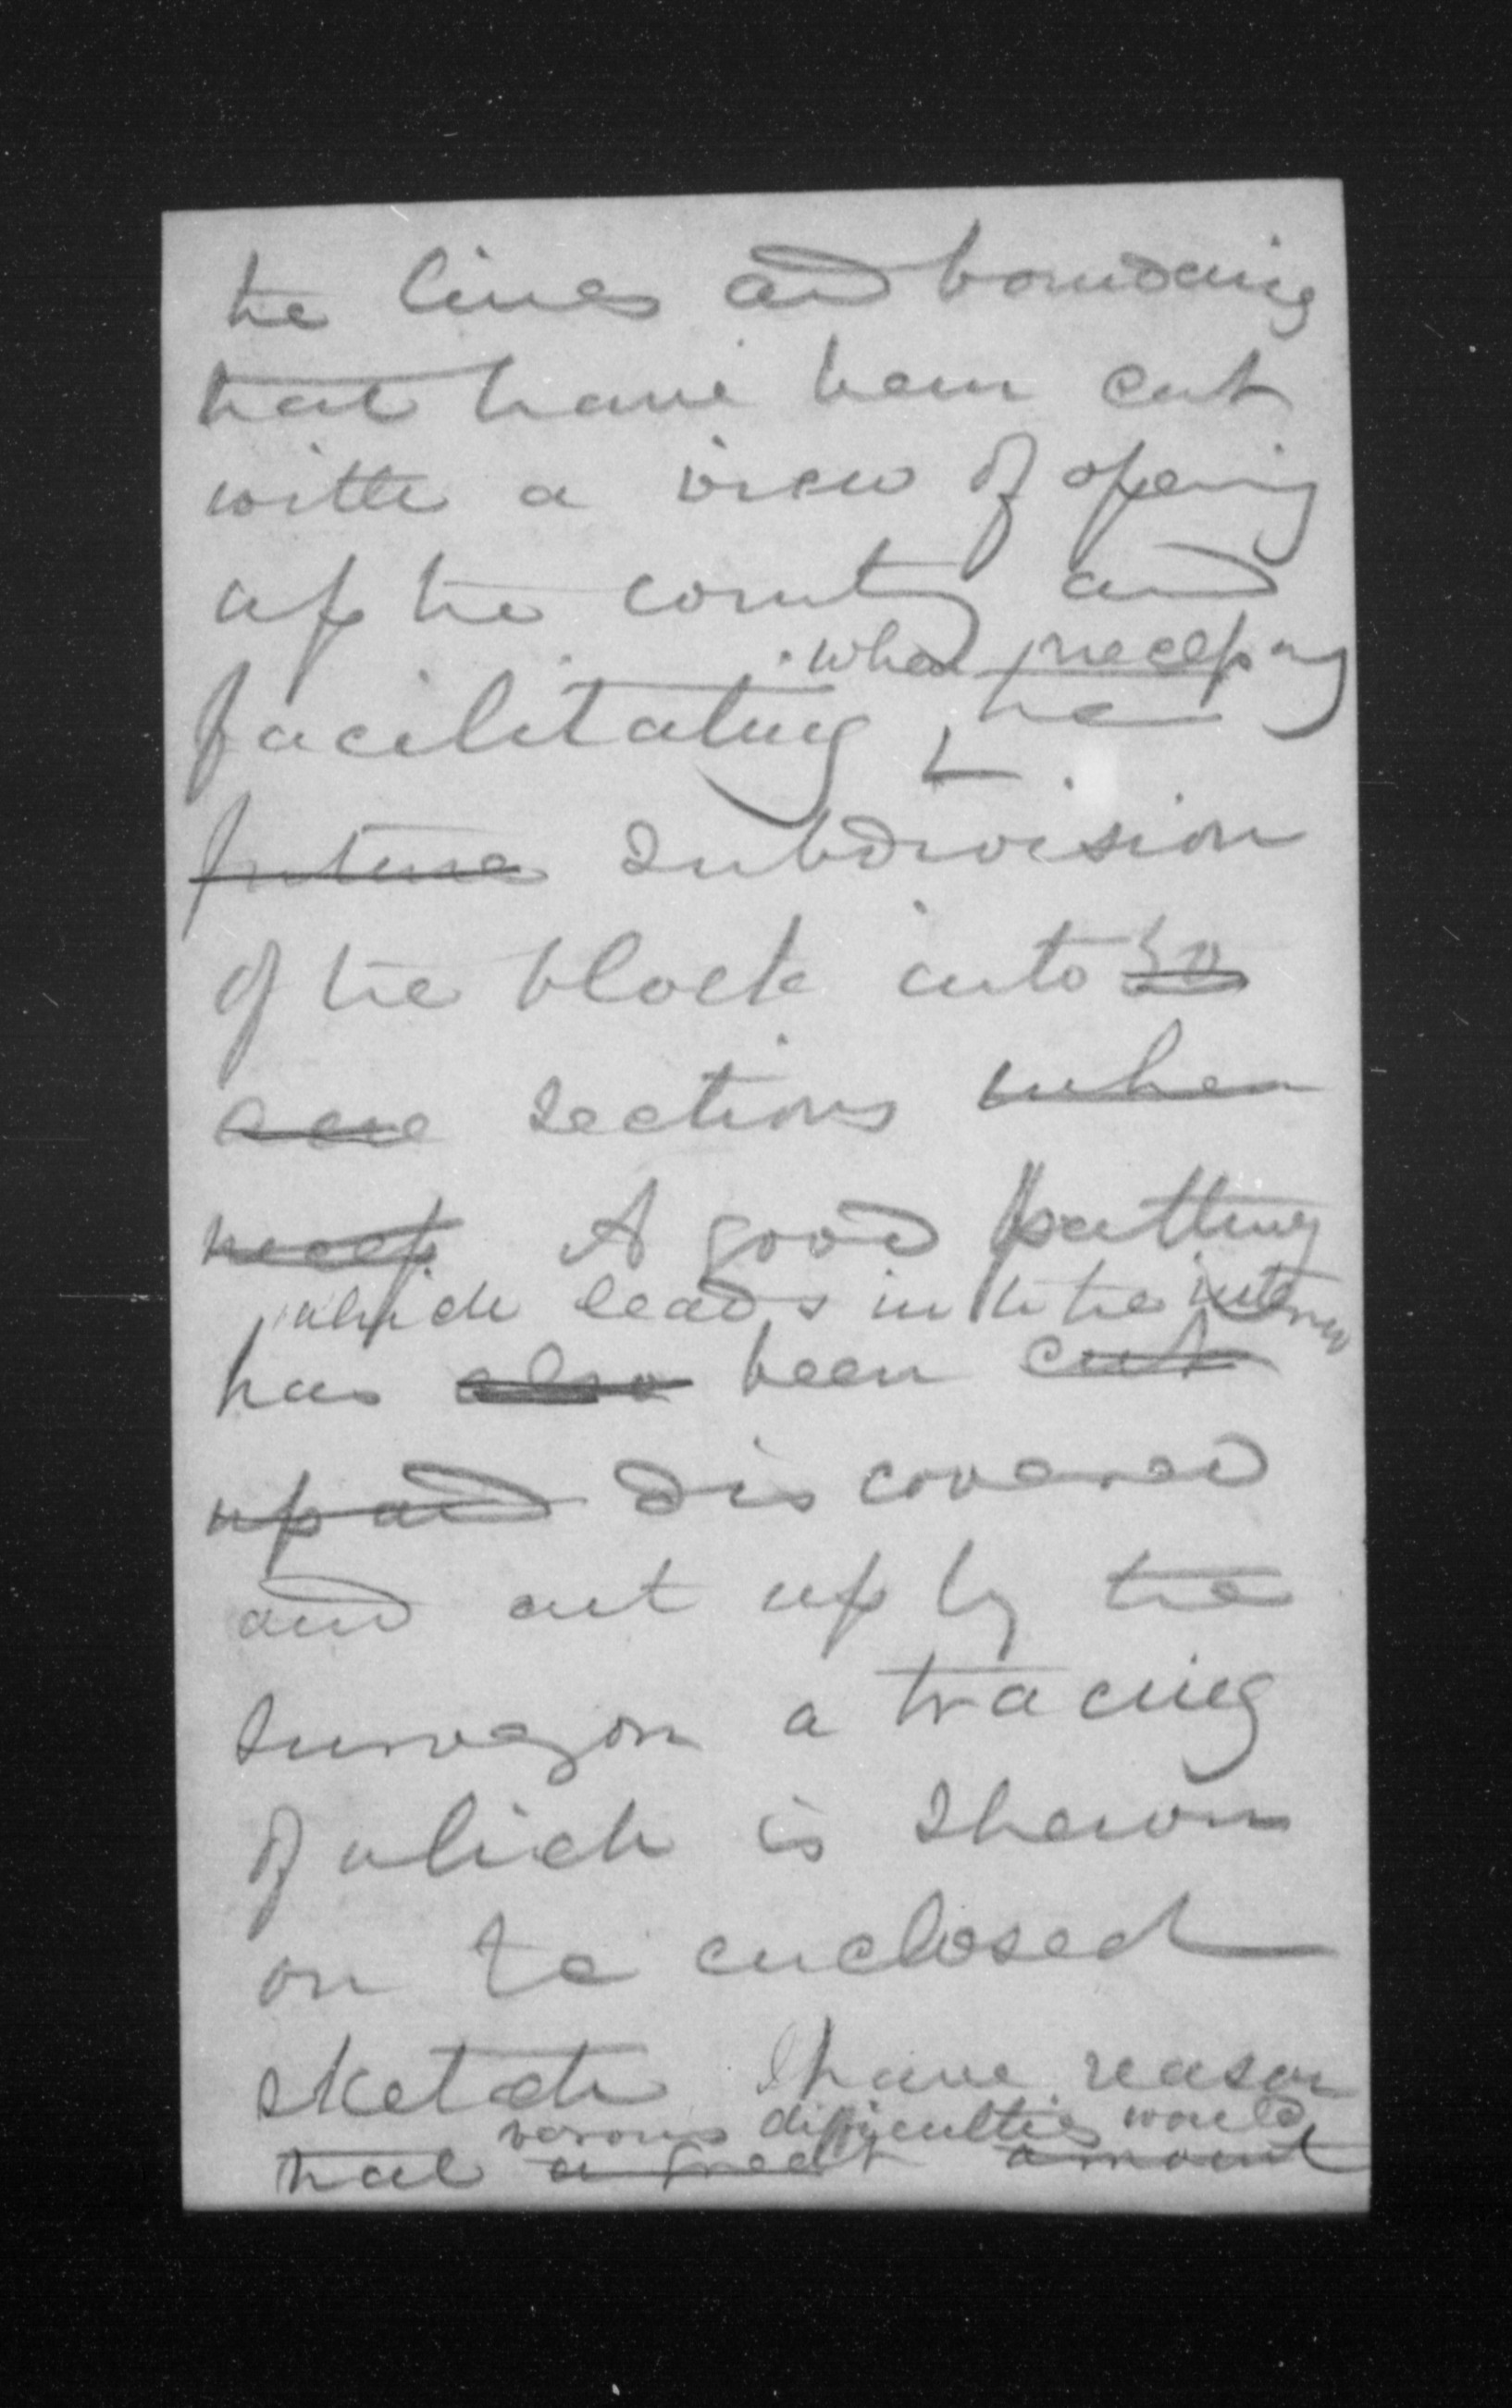 the lines and boundaries
that have been cut
with a view of opening
up the country and
when necessary
facilitating the
future subdivision
of the block into 50
acre sections when
necess A good
which leads into the interior
has also been cut
up and discovered
and cut up by the
surveyor a tracing
of which is shewn
on the enclosed
sketch I have reason
various difficulties would
that a great amount